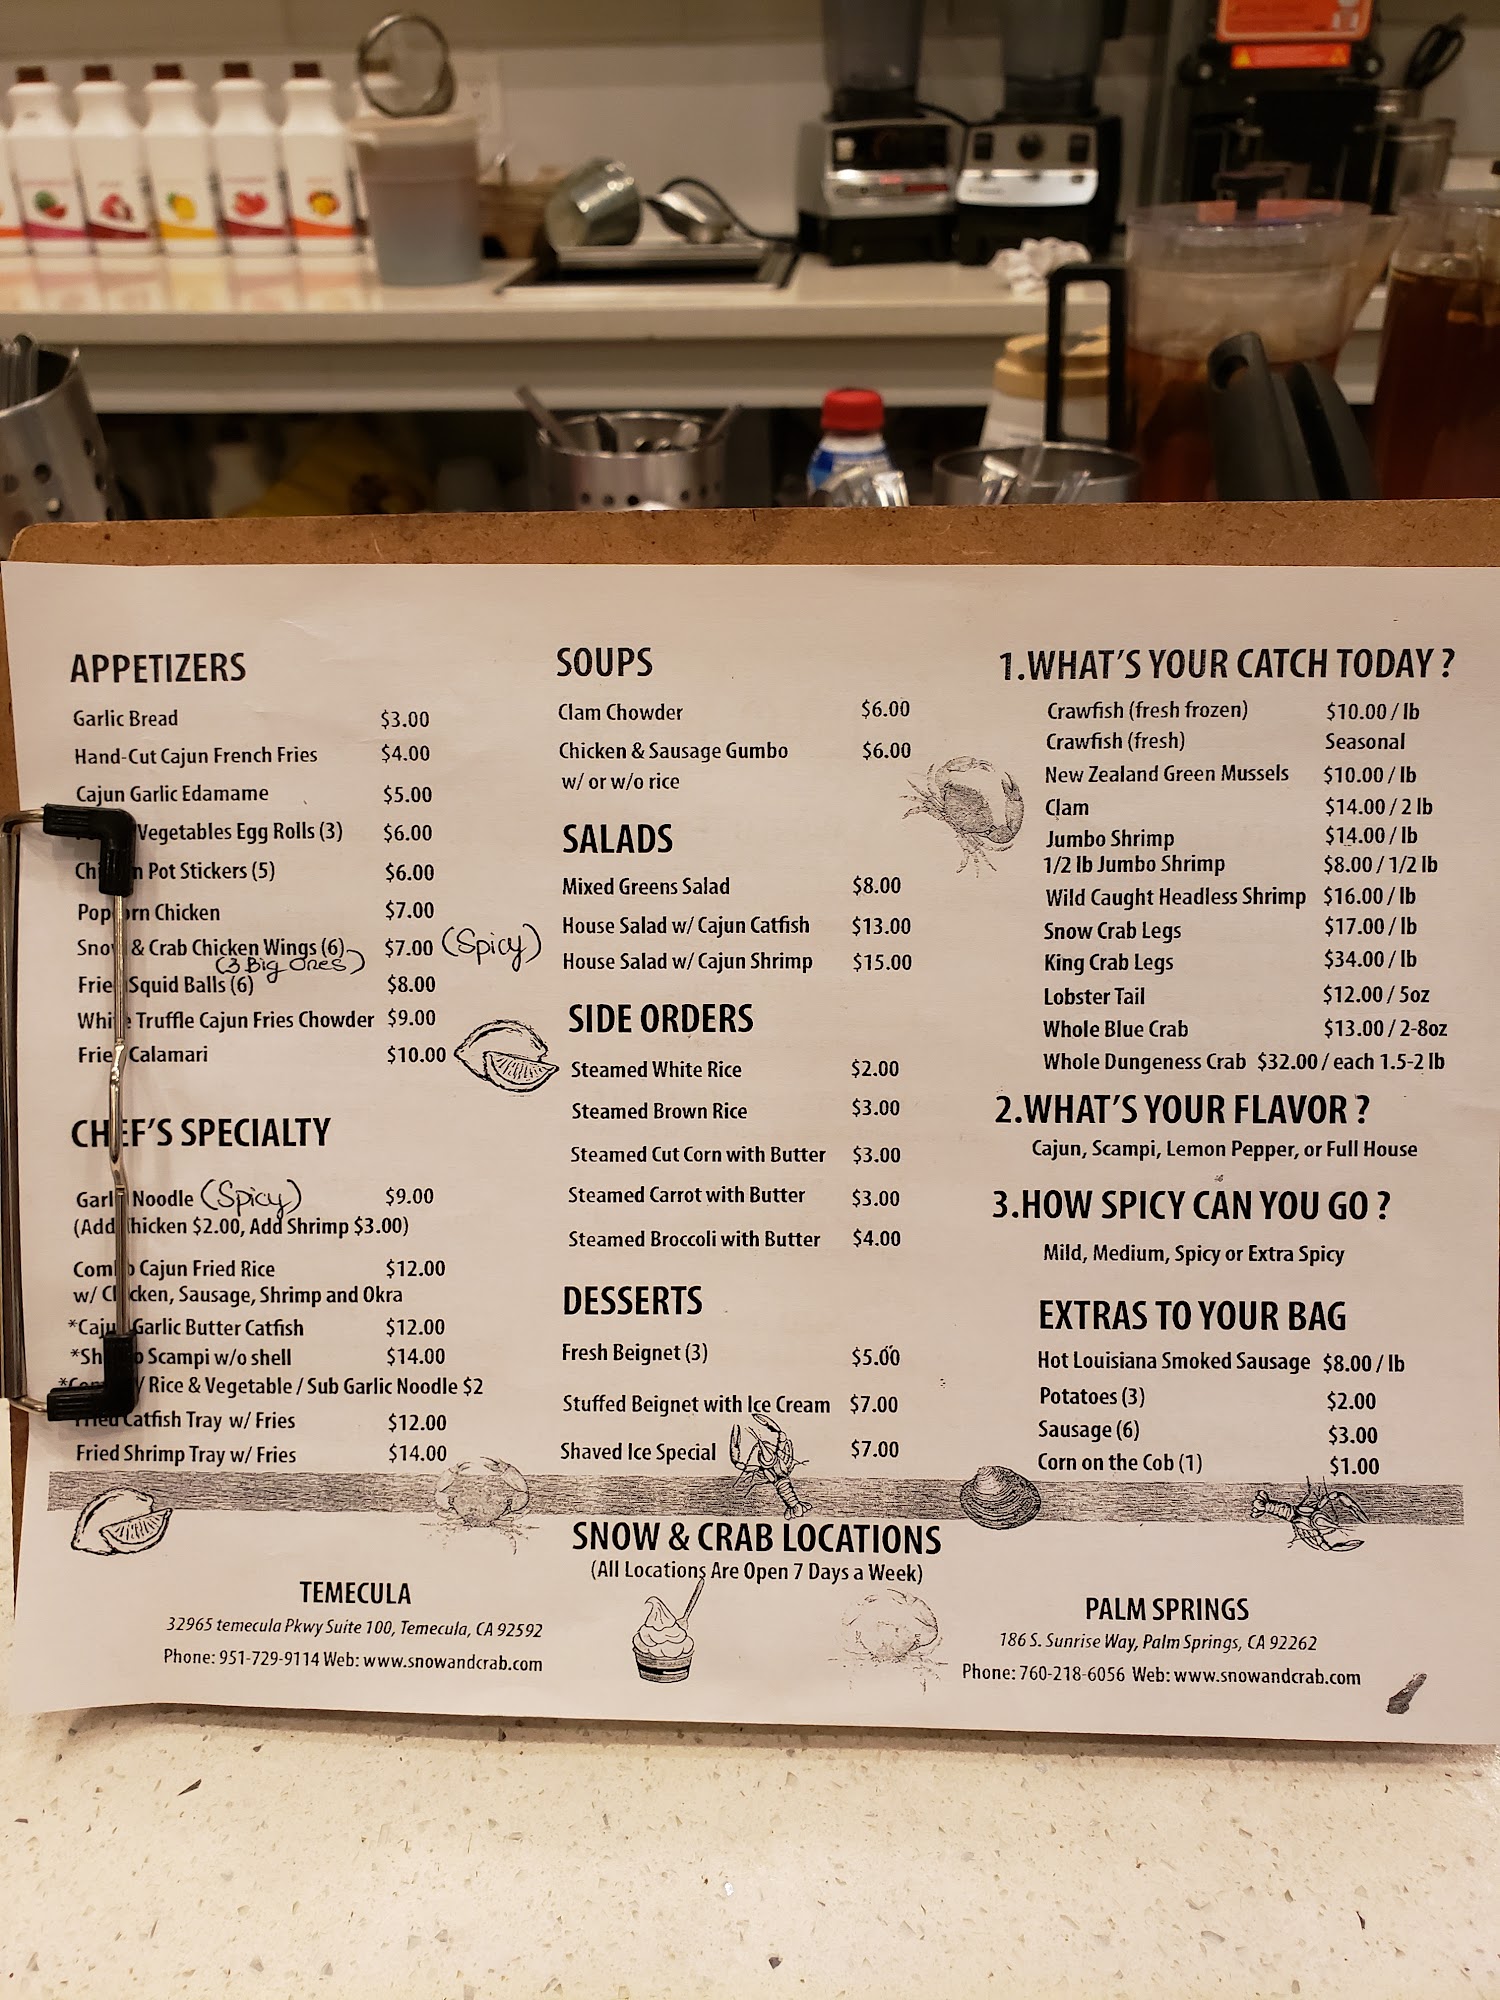 APPETIZERS
Garlic Bread $3.00
Hand-Cut Cajun French Fries $4.00
Cajun Garlic Edamame $5.00
Vegetables Egg Rolls (3) $6.00
Pot Stickers (5) $6.00
Popcorn Chicken $7.00
Snow & Crab Chicken Wings (6) $7.00 (Spicy)
(3 Big Ones)
Fried Squid Balls (6) $8.00
White Truffle Cajun Fries Chowder $9.00
Fried Calamari $10.00
CHEF'S SPECIALTY
Garlic Noodle (Spicy) $9.00
(Add Chicken $2.00, Add Shrimp $3.00)
Combo Cajun Fried Rice $12.00
w/ Chicken, Sausage, Shrimp and Okra
*Cajun Garlic Butter Catfish $12.00
*Shrimp Scampi w/o shell $14.00
Rice & Vegetable / Sub Garlic Noodle $2
Fried Catfish Tray w/ Fries $12.00
Fried Shrimp Tray w/ Fries $14.00
SOUPS
Clam Chowder $6.00
Chicken & Sausage Gumbo $6.00
w/ or w/o rice
SALADS
Mixed Greens Salad $8.00
House Salad w/ Cajun Catfish $13.00
House Salad w/ Cajun Shrimp $15.00
SIDE ORDERS
Steamed White Rice $2.00
Steamed Brown Rice $3.00
Steamed Cut Corn with Butter $3.00
Steamed Carrot with Butter $3.00
Steamed Broccoli with Butter $4.00
DESSERTS
Fresh Beignet (3) $5.00
Stuffed Beignet with Ice Cream $7.00
Shaved Ice Special $7.00
1.WHAT'S YOUR CATCH TODAY ?
Crawfish (fresh frozen) $10.00 / lb
Crawfish (fresh) Seasonal
New Zealand Green Mussels $10.00 / lb
Clam $14.00 / 2 lb
Jumbo Shrimp $14.00 / lb
1/2 lb Jumbo Shrimp $8.00 / 1/2 lb
Wild Caught Headless Shrimp $16.00 / lb
Snow Crab Legs $17.00 / lb
King Crab Legs $34.00 / lb
Lobster Tail $12.00 / 5oz
Whole Blue Crab $13.00 / 2-8oz
Whole Dungeness Crab $32.00 / each 1.5-2 lb
2.WHAT'S YOUR FLAVOR ?
Cajun, Scampi, Lemon Pepper, or Full House
3.HOW SPICY CAN YOU GO ?
Mild, Medium, Spicy or Extra Spicy
EXTRAS TO YOUR BAG
Hot Louisiana Smoked Sausage $8.00 / lb
Potatoes (3) $2.00
Sausage (6) $3.00
Corn on the Cob (1) $1.00
SNOW & CRAB LOCATIONS
(All Locations Are Open 7 Days a Week)
TEMECULA
32965 temecula Pkwy Suite 100, Temecula, CA 92592
Phone: 951-729-9114 Web: www.snowandcrab.com
PALM SPRINGS
186 S. Sunrise Way, Palm Springs, CA 92262
Phone: 760-218-6056 Web: www.snowandcrab.com